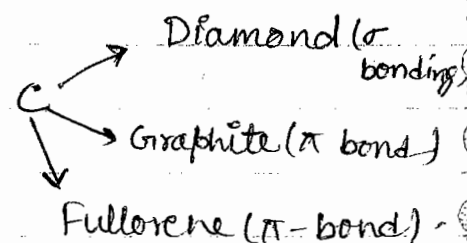 Diamond (σ
bonding)
C
Graphite (π bond)
Fullorene (π-bond) -